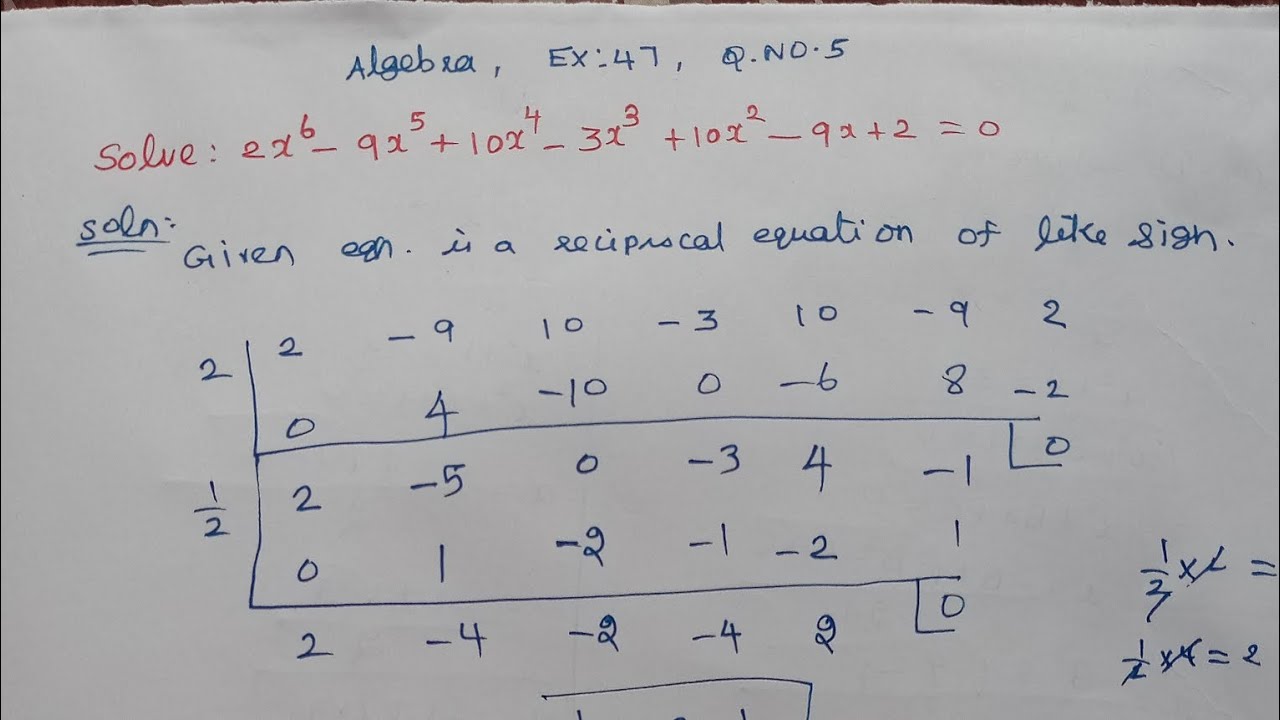 Algebra, EX:47, Q.NO.5
Solve: 2x⁶ - 9x⁵ + 10x⁴ - 3x³ + 10x² - 9x + 2 = 0
Soln:
Given eqn. is a reciprocal equation of like sign.
2 | 2 -9 10 -3 10 -9 2
0 4 -10 0 -6 8 -2
1/2 | 2 -5 0 -3 4 -1 | 0
0 1 -2 -1 -2 1
2 -4 -2 -4 2 | 0
1/2 × 4 = 2